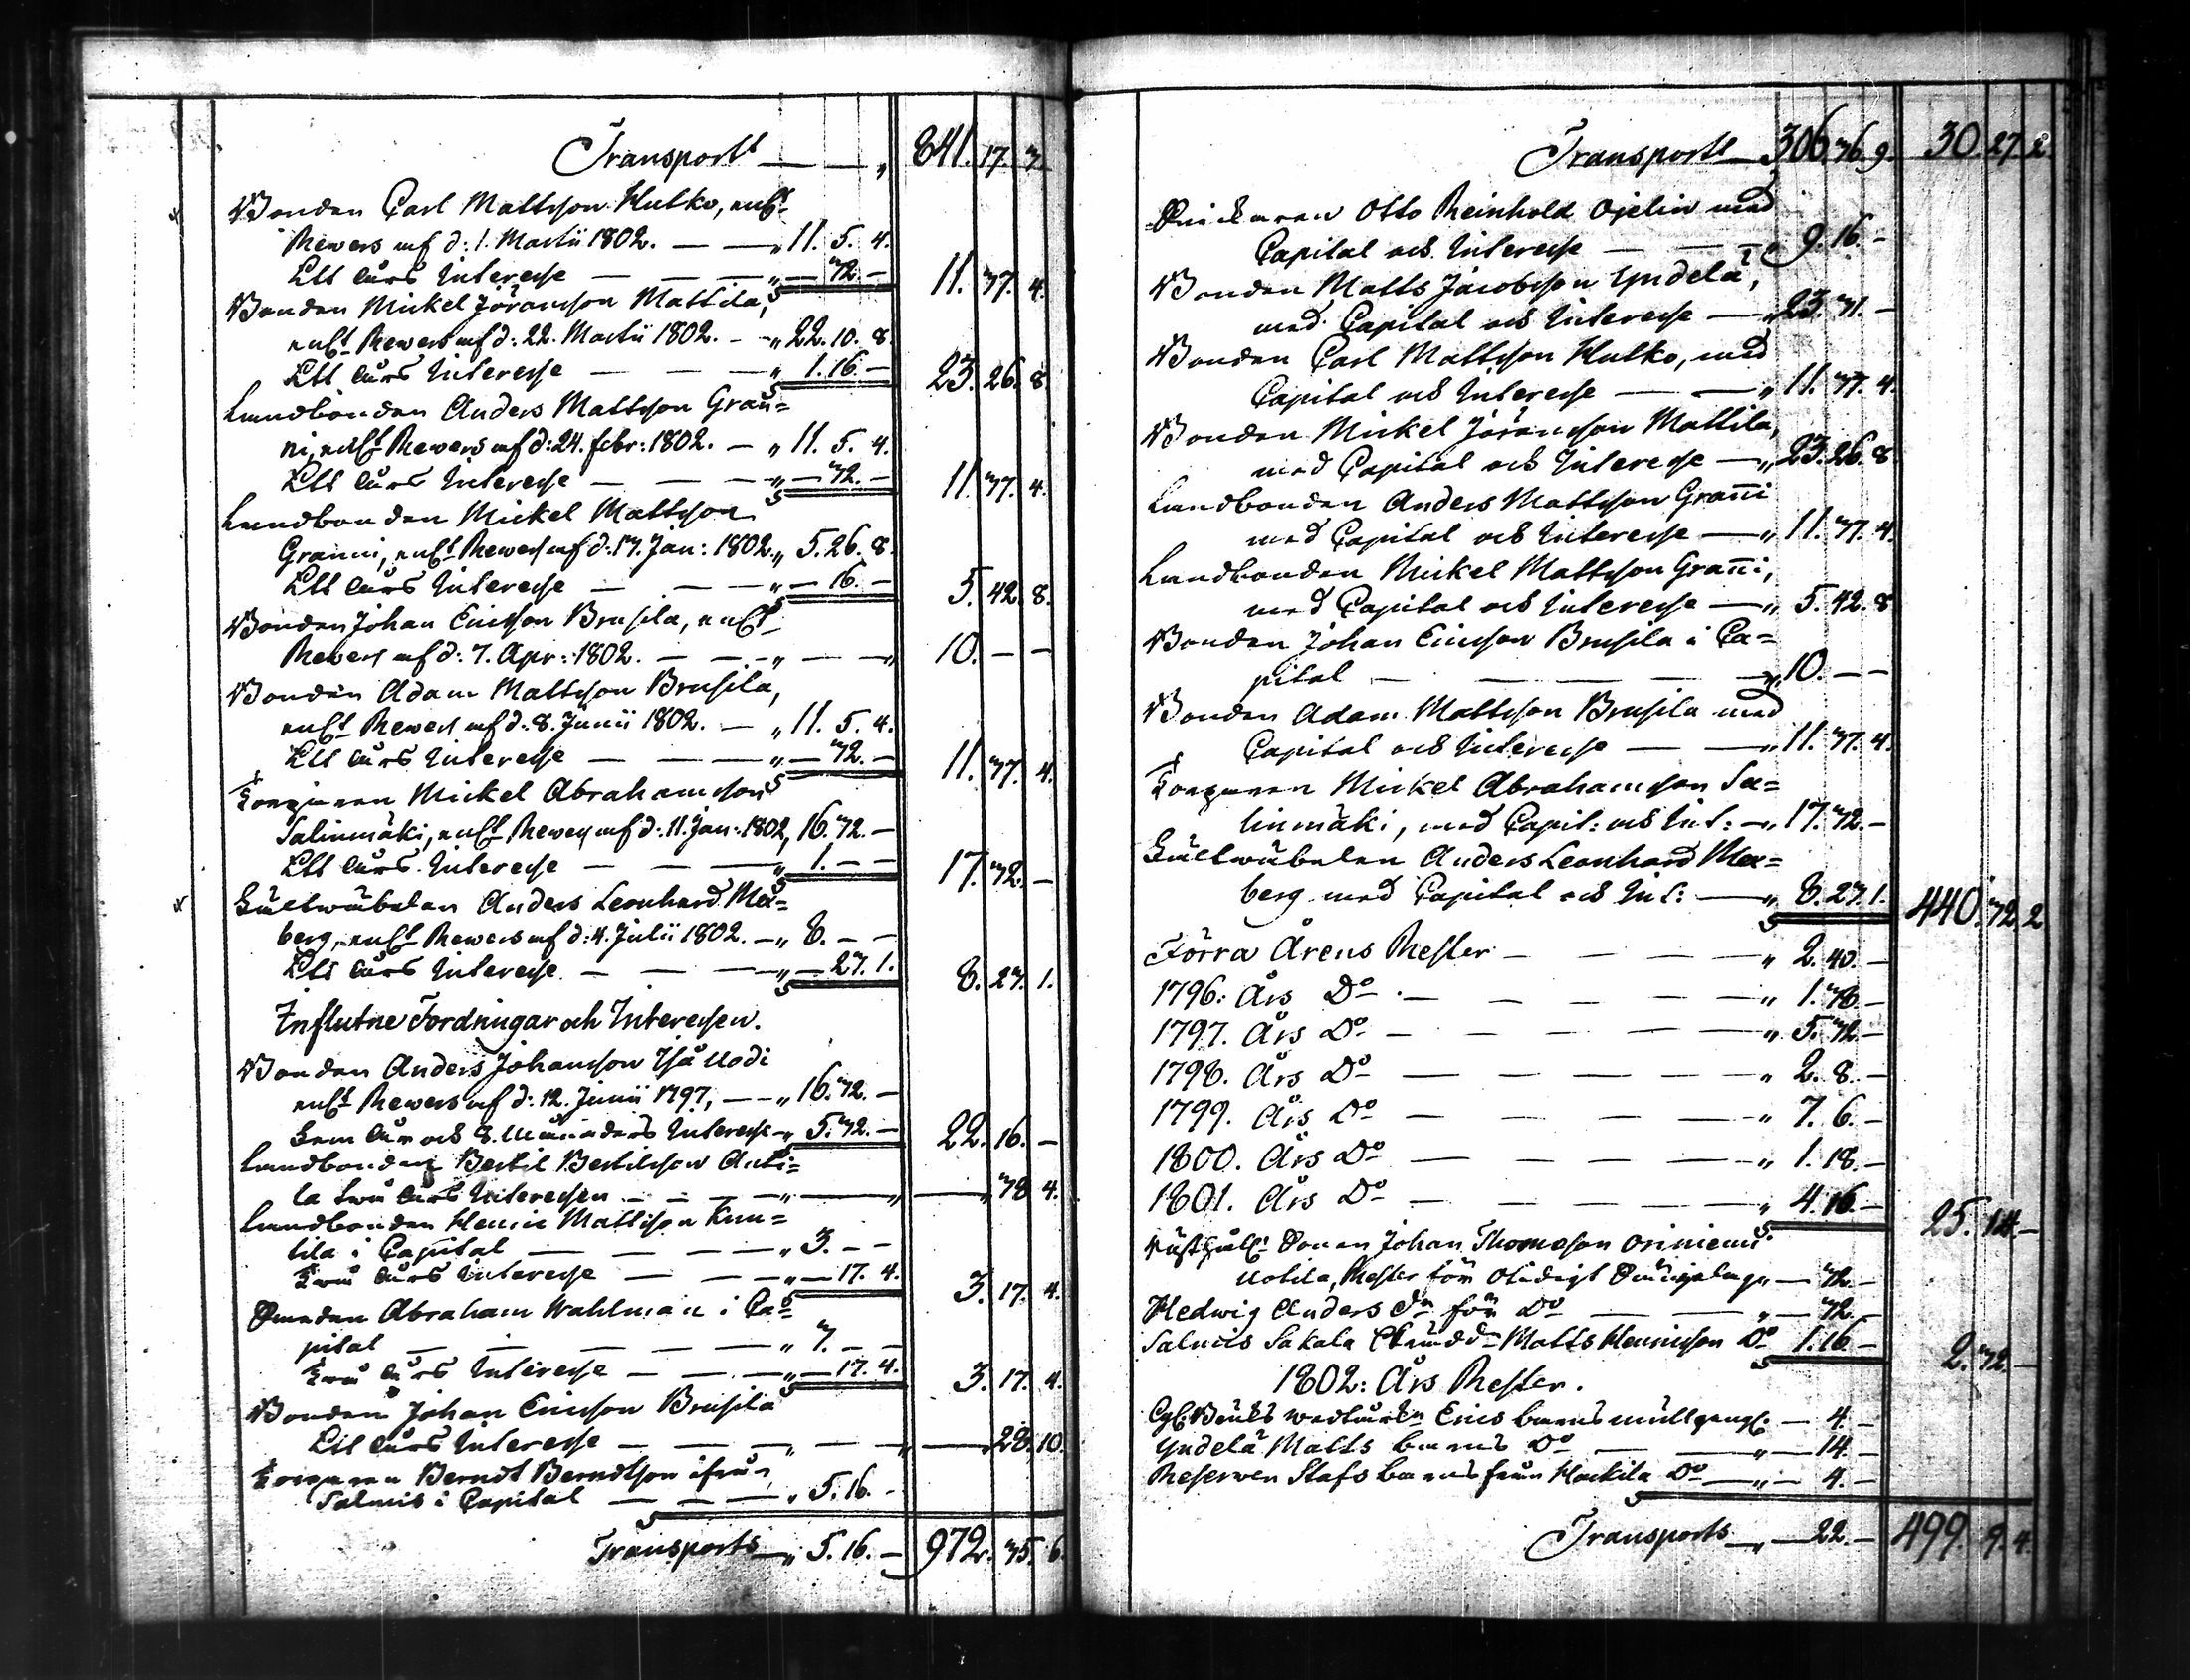 Transport — — „ 841. 17. 7.
Bonden Carl Mattsson Hutko, enl:t
Revers af d: 1. Martii 1802. — — „ 11. 5. 4.
Ett års Interesse — — — „ — 72. — 11. 77. 4.
Bonden Mickel Jöransson Mattila,
enl:t Revers af d: 22. Martii 1802. — „ 22. 10. 8.
Ett års Interesse — — — „ 1. 16. — 23. 26. 8.
Landbonden Anders Mattsson Gran=
ni, enl:t Revers af d: 24. febr: 1802. — „ 11. 5. 4.
Ett års Interesse — — — „ — 72. — 11. 77. 4.
Landbonden Mickel Mattsson
Granni, enl:t Revers af d: 17. Jan: 1802. „ 5. 26. 8.
Ett års Interesse — — — „ — 16. — 5. 42. 8.
Bonden Johan Ericsson Brusila, enl:t
Revers af d: 7. Apr: 1802. — — „ — — „ 10. — —
Bonden Adam Mattsson Brusila,
enl:t Revers af d: 8. Junii 1802. — „ 11. 5. 4.
Ett års Interesse — — — „ — 72. — 11. 77. 4.
Torparen Mickel Abrahamsson
Salinmäki, enl:t Revers af d: 11. Jan: 1802, 16. 72. —
Ett års Interesse — — — „ 1. — — 17. 72. —
Fältwäbelen Anders Leonhard Mä=
berg, enl:t Revers af d: 4. Julii 1802. — „ 8. — —
Ett års Interesse — — — „ — 27. 1. 8. 27. 1.
Influtne Fordringar och Interessen.
Bonden Anders Johansson Iso Uodi
enl:t Revers af d: 12. Junii 1797, — — „ 16. 72. —
Fem år och 8. Månaders Interesse — „ 5. 72. — 22. 16. —
Landbonden Bertil Bertilsson Anti=
la två års Interessen — — — „ — „ — „ 78. 4.
Landbonden Henric Mattsson Knu=
tila i Capital — — — — „ 3. — —
Två års Interesse — — — „ — 17. 4. 3. 17. 4.
Abraham Wahlman i Ca=
pital — — — — — „ 7. — —
Två års Interesse — — — „ — 17. 4. 3. 17. 4.
Bonden Johan Ericsson Brusila
Ett års Interesse — — — „ — — „ — „ 28. 10.
Torparen Berndt Berndtson ifrån
Salmis i Capital — — — „ 5. 16. —
Transports — „ 5. 16. — 972. 75. 6.
Transport — 306. 76. 9. 30. 27. 2.
Otto Reinhold Ojelin med
Capital och Interesse — — — „ 9. 16. —
Bonden Matts Jacobsson Yndelä,
med Capital och Interesse — „ 23. 71. —
Bonden Carl Mattsson Hutko, med
Capital och Interesse — — „ 11. 77. 4.
Bonden Mickel Jöransson Mattila,
med Capital och Interesse — „ 23. 26. 8.
Landbonden Anders Mattsson Grani
med Capital och Interesse — „ 11. 77. 4.
Landbonden Mickel Mattsson Grani,
med Capital och Interesse — „ 5. 42. 8.
Bonden Johan Ericsson Brusila i Ca=
pital — — — — — „ 10. — —
Bonden Adam Mattsson Brusila med
Capital och Interesse — — „ 11. 77. 4.
Torparen Mickel Abrahamsson Sa=
linmäki, med Capit: och Int: — „ 17. 72. —
Fältwäbelen Anders Leonhard Mä=
berg med Capital och Int: — „ 8. 27. 1. 440. 72. 2
Förra Årens Rester — — — — „ 2. 40. —
1796: Års D:o — — — — — „ 1. 78. —
1797. Års D:o — — — — — „ 5. 72. —
1798. Års D:o — — — — — „ 2. 8. —
1799. Års D:o — — — — — „ 7. 6. —
1800. Års D:o — — — — — „ 1. 18. —
1801. Års D:o — — — — — „ 4. 16. — 25. 14. —
Johan Thomasson
Uotila, Rester för Otidigt „ — 72. —
Hedwig Anders d:r för D:o — — „ — 72. —
Salmis Sakala Matts Henricsson D:o 1. 16. — 2. 72. —
1802: Års Rester.
Erics barns — 4. —
Yndelä Matts barns D:o — — „ — 14. —
Reserven Stafs barns från Hackila D:o — „ — 4. —
Transports — „ — 22. — 499. 9. 4.